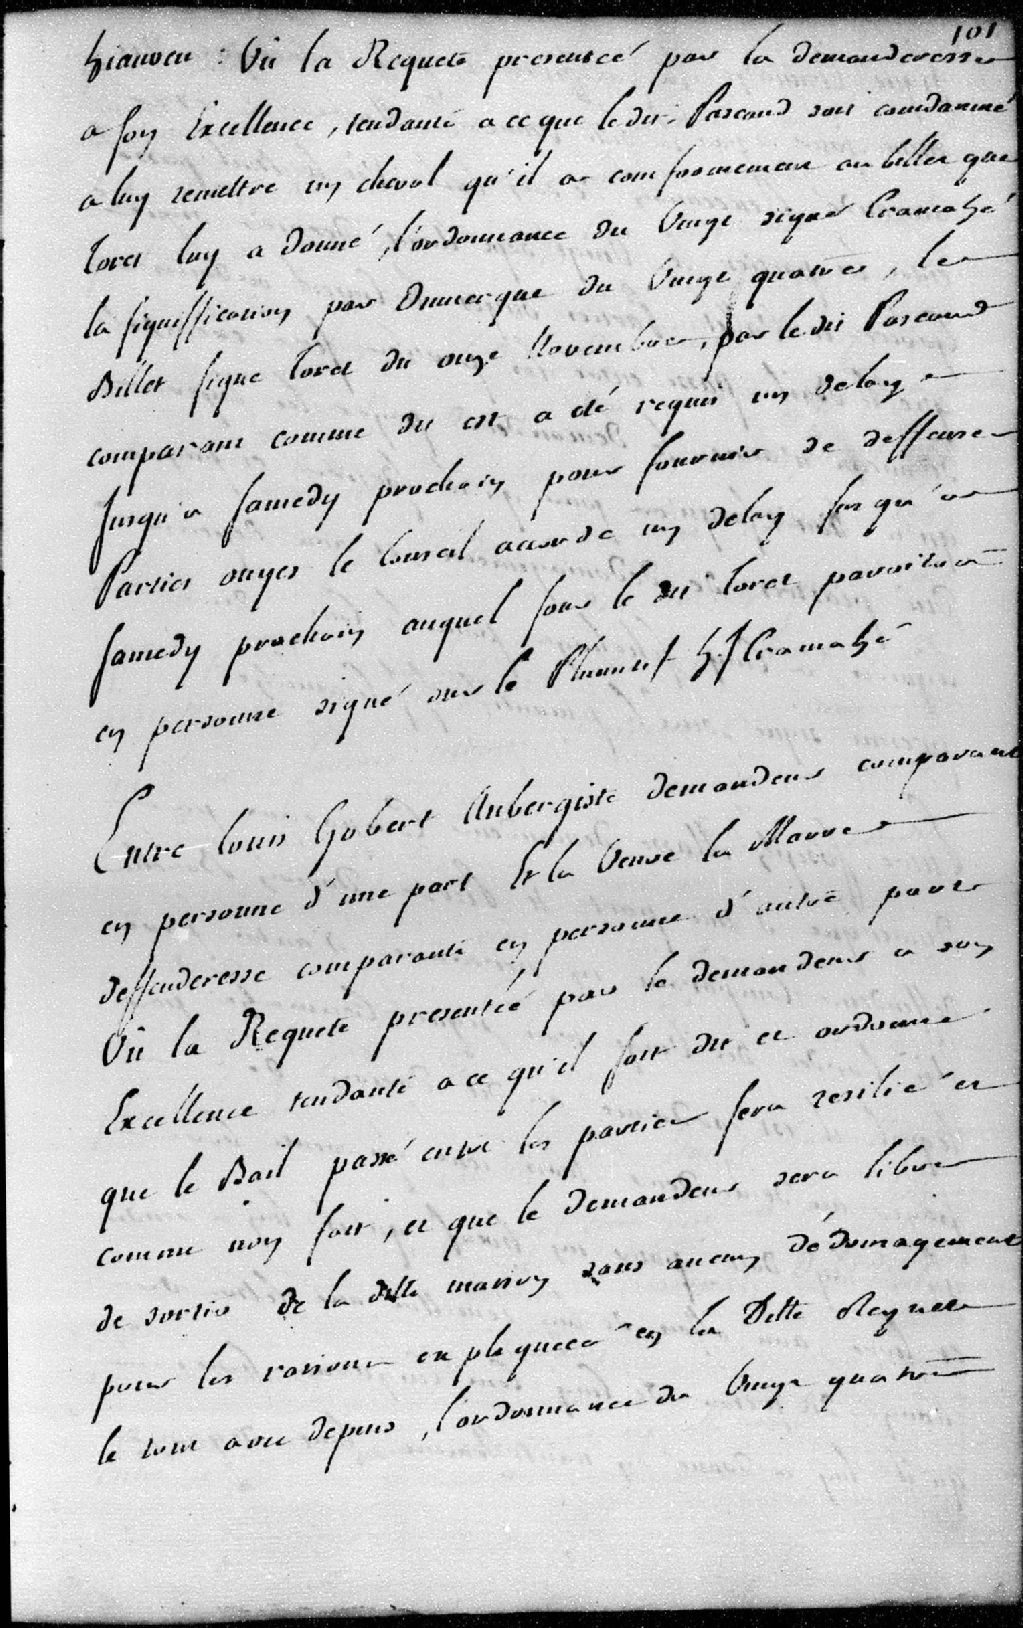 101
hianveu : Vû la Requete presenteé par la demanderesse
a son Excellence, tendante a ce que le dit Pascaud soit condamné
a luy remettre un cheval qu'il a conformement au billet que
Loret luy a donné, l'ordonnance du Vingt signé Cramahé
la signiffication par Dumergue du Vingt quatre, le
Billet signé Loret du onze Novembre, par le dit Pascaud
comparant comme dit est a été requis un delay
Jusqu'a samedy prochain pour fournir de deffense
Parties ouyes le Conseil accorde un delay jusqu'a
samedy prochain auquel jour le dit Loret paroitra
en personne signé sur le Plumitif h.J Cramahé
Entre louis Gobert Aubergiste demandeur comparant
en personne d'une part Et la Veuve la Marre
deffenderesse comparante en personne d'autre part
Vû la Requete presenteé par le demandeur a son
Excellence tendante a ce qu'il soit dit et ordonné
que le Bail passé entre les parties sera resilié et
comme non fait, et que le demandeur sera libre
de sortir de la ditte maison sans aucun dédomagement
pour les raisons expliqueés en la Ditte Requete
le tout avec depens, l'ordonnance du Vingt quatre